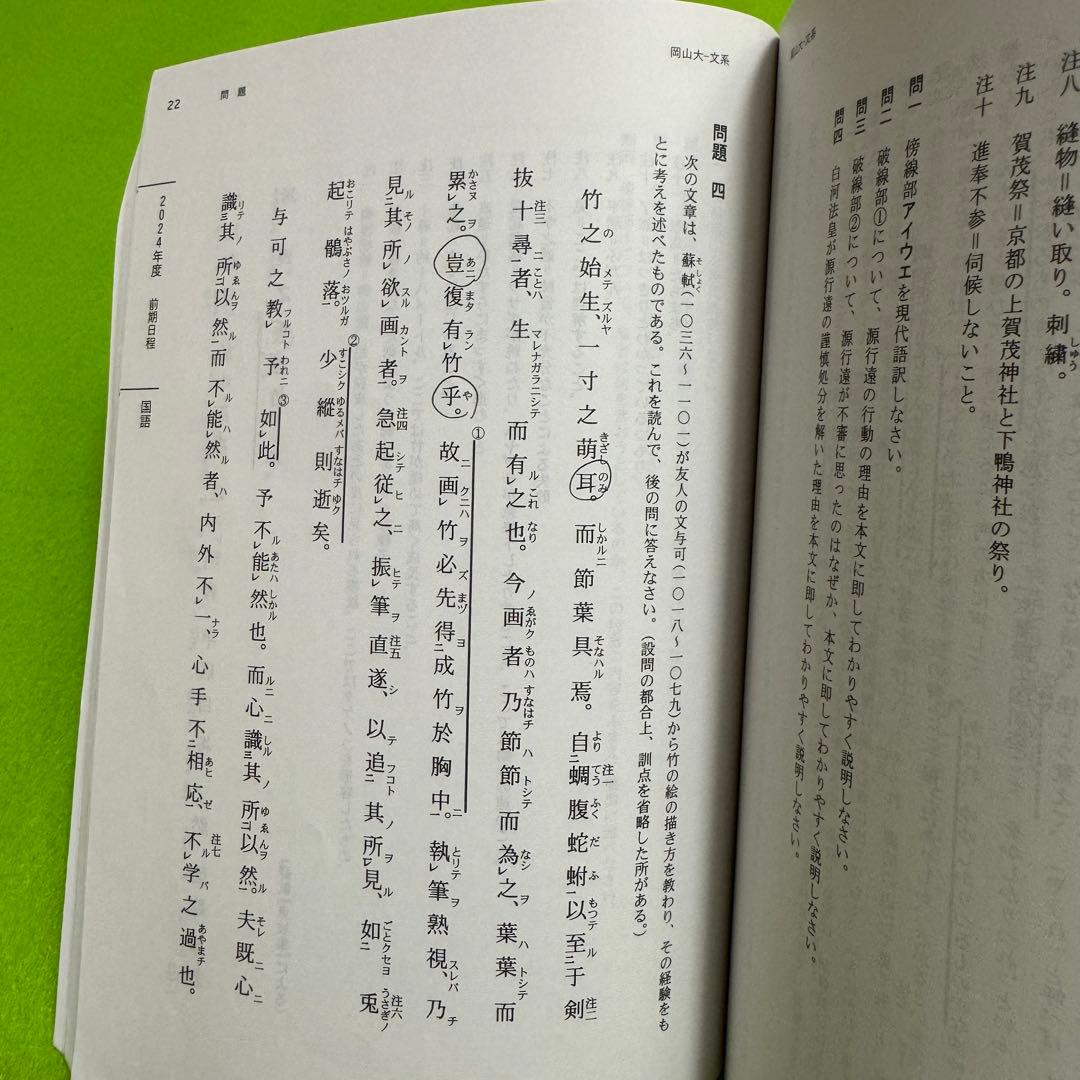 注八 縫物=縫い取り。刺繡。
注九 賀茂祭=京都の上賀茂神社と下鴨神社の祭り。
注十 進奉不参=伺候しないこと。
問一 傍線部アイウエを現代語訳しなさい。
問二 破線部①について、源行遠の行動の理由を本文に即してわかりやすく説明しなさい。
問三 破線部②について、源行遠が不審に思ったのはなぜか、本文に即してわかりやすく説明しなさい。
問四 白河法皇が源行遠の謹慎処分を解いた理由を本文に即してわかりやすく説明しなさい。
岡山大-文系
問題 四
次の文章は、蘇軾(一〇三六~一一〇一)が友人の文与可(一〇一八~一〇七九)から竹の絵の描き方を教わり、その経験をも
とに考えを述べたものである。これを読んで、後の問に答えなさい。(設問の都合上、訓点を省略した所がある。)
竹之始生、一寸之萌耳。而節葉具焉。自蜩腹蛇蚹以至于剣
抜十尋者、生而有之也。今画者乃節節而為之、葉葉而
累之。豈復有竹乎。故画竹必先得成竹於胸中。執筆熟視、乃
見其所欲画者。急起従之、振筆直遂、以追其所見、如兎
起鶻落。少縦則逝矣。
与可之教予如此。予不能然也。而心識其所以然。夫既心
識其所以然而不能然者、内外不一、心手不相応、不学之過也。
22 問題
2024年度 前期日程
国語